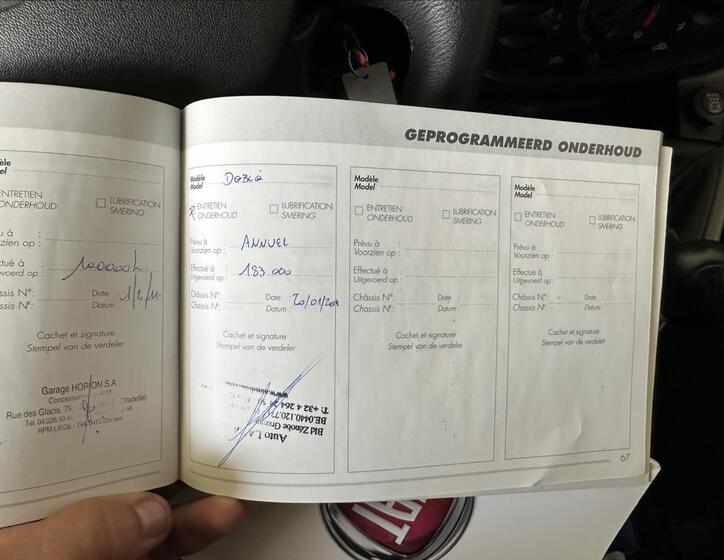 GEPROGRAMMEERD ONDERHOUD
Modèle
Model
ENTRETIEN
ONDERHOUD
LUBRIFICATION
SMERING
Prévu à
Voorzien op :
Effectué à
Uitgevoerd op :
100000
Châssis N°:
Chassis N°:
Date :
Datum :
1/2/11
Cachet et signature
Stempel van de verdeler
Garage HORION S.A.
Rue des Glacis, 75
RPM LIEGE - TVA
Modèle
Model
DOBLO
ENTRETIEN
ONDERHOUD
LUBRIFICATION
SMERING
Prévu à :
Voorzien op :
ANNUEL
Effectué à :
Uitgevoerd op :
183.000
Châssis N°:
Chassis N°:
Date :
Datum :
20/01/
Cachet et signature
Stempel van de verdeler
Auto
Bld Zénobe
BE.0440.120.
T: +32 4 264
www.
Modèle
Model
ENTRETIEN
ONDERHOUD
LUBRIFICATION
SMERING
Prévu à :
Voorzien op :
Effectué à :
Uitgevoerd op :
Châssis N°:
Chassis N°:
Date :
Datum :
Cachet et signature
Stempel van de verdeler
Modèle
Model
ENTRETIEN
ONDERHOUD
LUBRIFICATION
SMERING
Prévu à :
Voorzien op :
Effectué à :
Uitgevoerd op :
Châssis N°:
Chassis N°:
Date :
Datum :
Cachet et signature
Stempel van de verdeler
67
FIAT